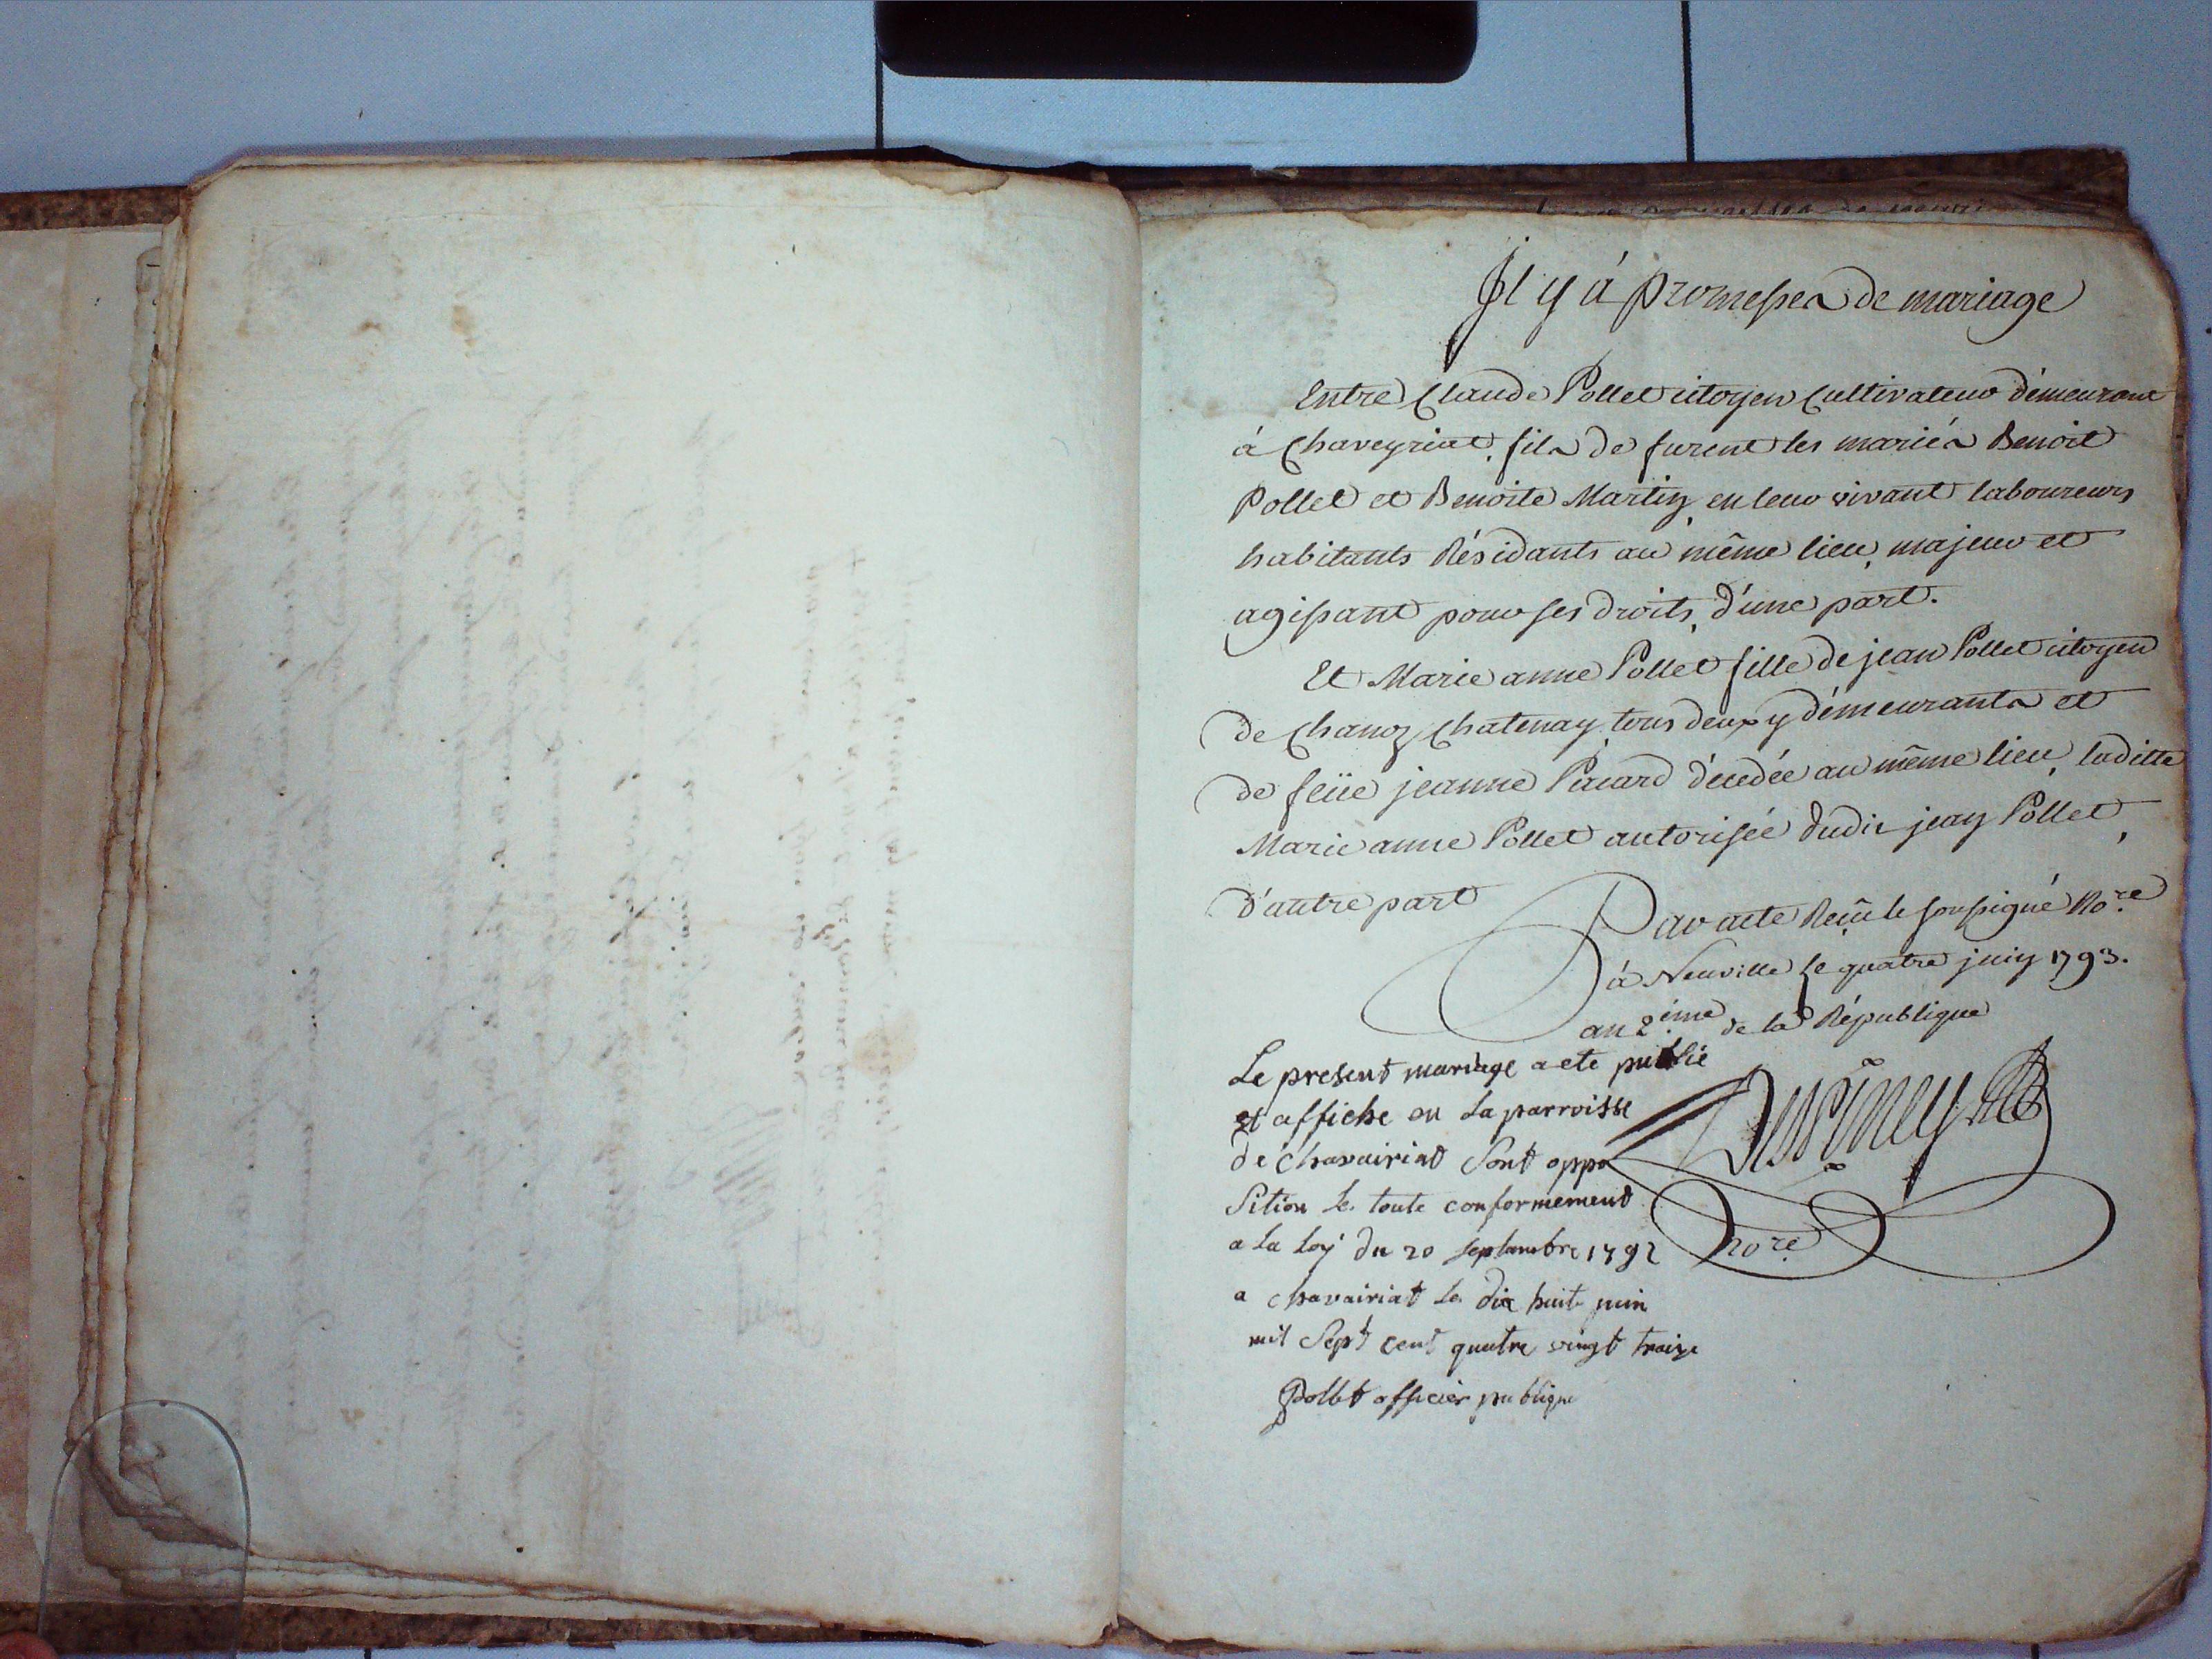 Il y á promesses de mariage
Entre Claude Pollet citoyen Cultivateur démeurant
á Chaveyriat, fils de furent les mariés Benoit
Pollet et Benoite Martin, en leur vivant laboureurs
habitants Résidants au même lieu, majeur et
agissant pour ses droits, d'une part.
Et Marie anne Pollet fille de jean Pollet citoyen
de Chanoz Chatenay, tous deux y démeurants et
de feüe jeanne Picard décedée au même lieu, laditte
Marie anne Pollet autorisée dudit jean Pollet,
d'autre part
Par acte Reçu le soussigné No.re
á Neuville le quatre juin 1793.
an 2.ime de la République
Le present mariage a ete publié
et affiche en La parroisse
de Chavairiat Sont oppo
Sition le toute conformement
a La Loy du 20 septambre 1792
a Chavairiat Le dix huit juin
mil Sept cent quatre vingt traize
Pollet officier publique
no.re